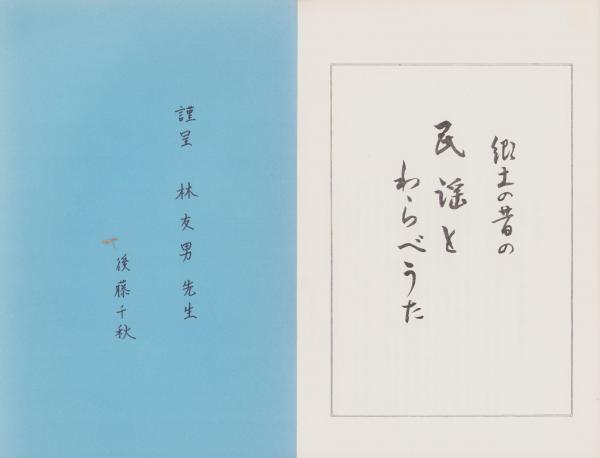 郷土の昔の
民謡と
わらべうた
謹呈 林友男先生
後藤千秋